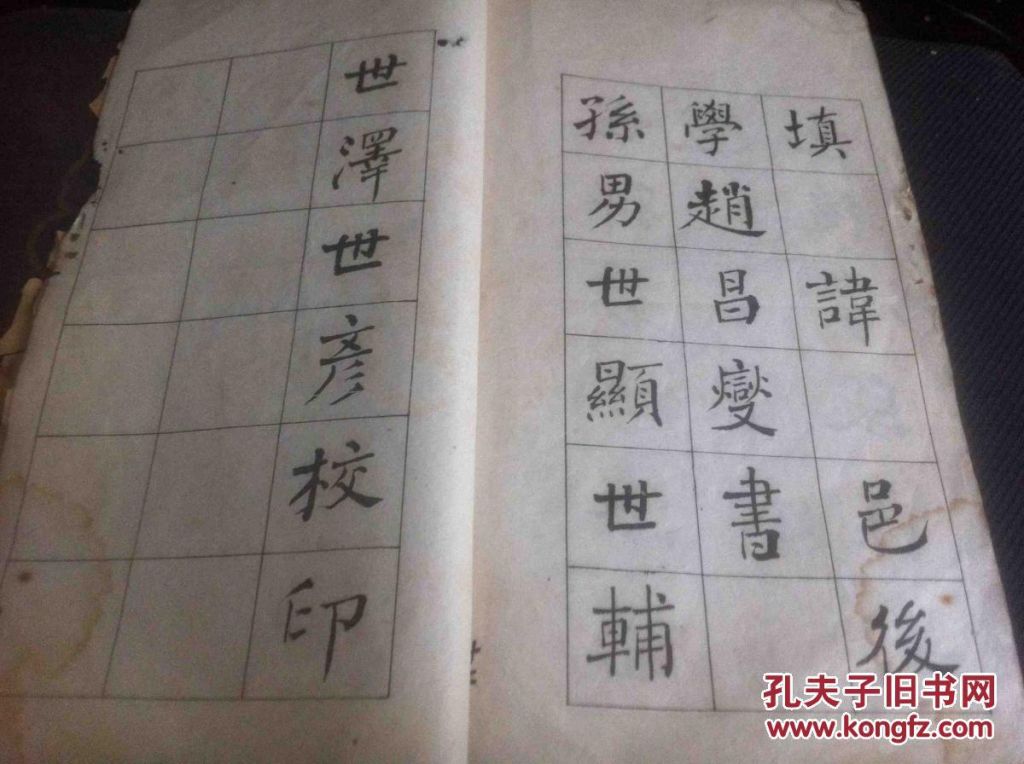 填諱邑後
學趙昌燮書
孫男世顯世輔
世澤世彥校印
孔夫子旧书网
www.kongfz.com